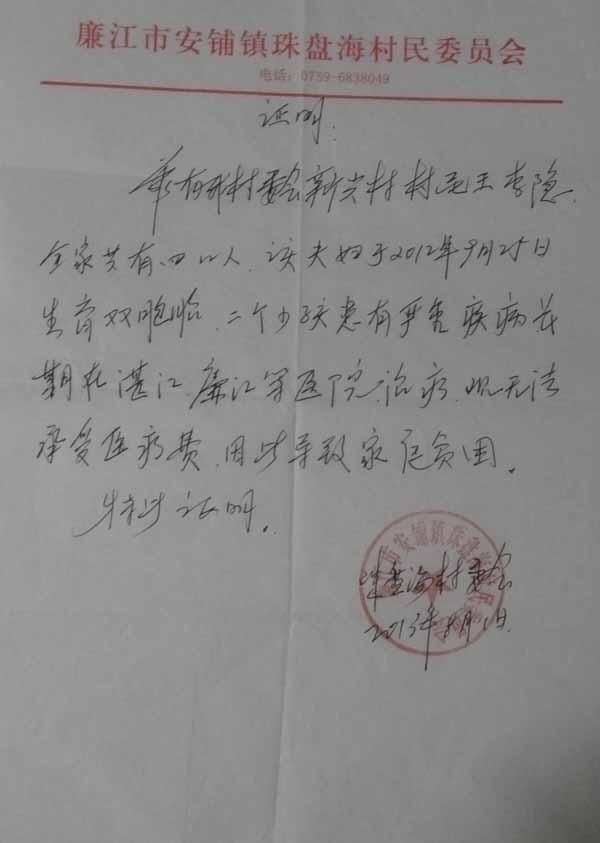 廉江市安铺镇珠盘海村民委员会
电话：0759-6838049
证明：
兹有我村委会新兴村村民王李隐，
全家共有四口人，该夫妇于2012年9月25日
生育双胞胎，二个小孩患有严重疾病长
期在湛江、廉江等医院治病，现无法
承受医疗费，因此导致家庭贫困。
特此证明。
珠盘海村委会
2013年8月1日